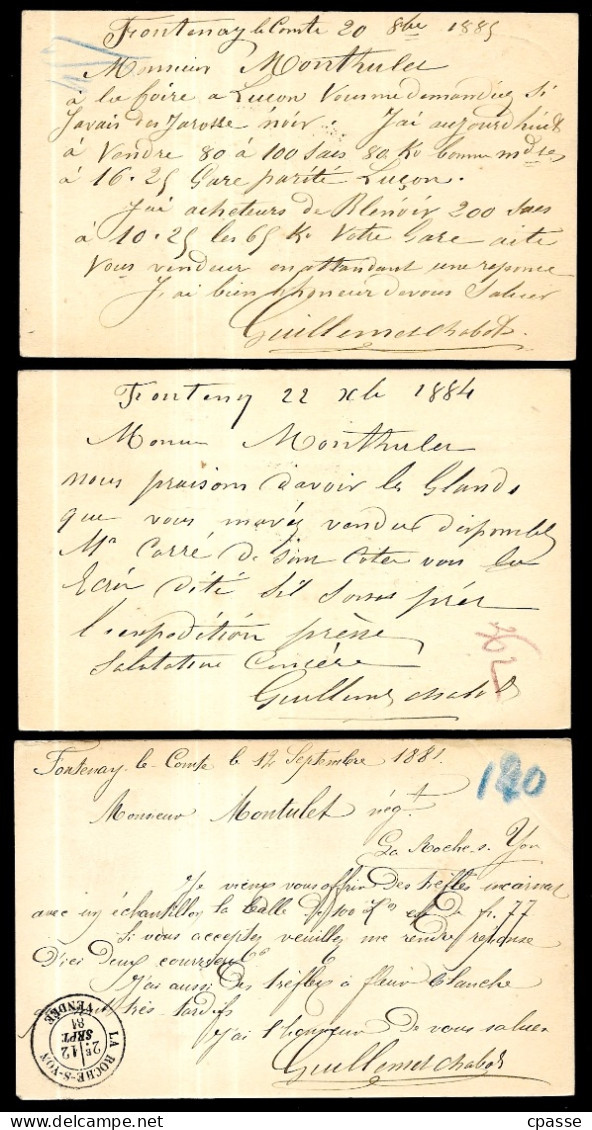 Fontenay le Comte 20 8bre 1885
Monsieur Monthulet
à la foire a Luçon Vous me demandiez si
J'avais des Jarosse noir. J'ai aujourd'hui
à Vendre 80 à 100 sacs 80 Ko bonne mdses
à 16.25 Gare parité Luçon.
J'ai acheteurs de Blé noir 200 sacs
à 10.25 les 65 Ko Votre Gare
Vous vendeur en attendant une reponce
J'ai bien l'honneur de vous Saluer
Guillemet chabot
Fonteny 22 Xbe 1884
Monsieur Monthulet
nous d'avoir les Glands
que vous m'avéz vendue disponible
Mr Carré de son Coter vous les
l'expédition présse
Salutation
Guillemet chabot
762
Fontenay le Compte le 12 Septembre 1881.
180
Monsieur Montulet négt
La Roche s. Yon
Je viens vous offrir des trèfles incarnat
avec un échantillon la balle de 100 Ko est de fr. 77
Si vous acceptez veuillez me rendre réponse
D'ici deux courseurs
J'ai aussi des trèfles à fleur blanche
très tardifs
J'ai l'honneur de vous saluer
Guillemet chabot
LA ROCHE-S-YON
2E 12 SEPT. 81
VENDÉE
© cpasse